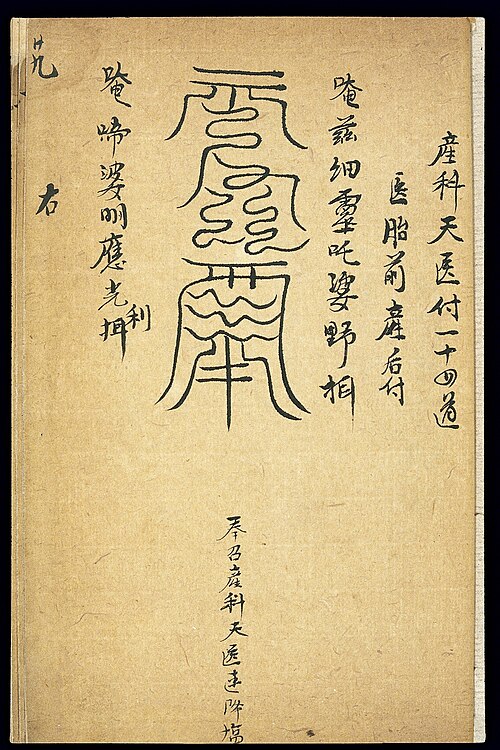 産科天医付一十四道
医胎前産后付
唵茲细靈吒婆野
奉召産科天医速降塲
唵啼婆明應光利
右
廿九